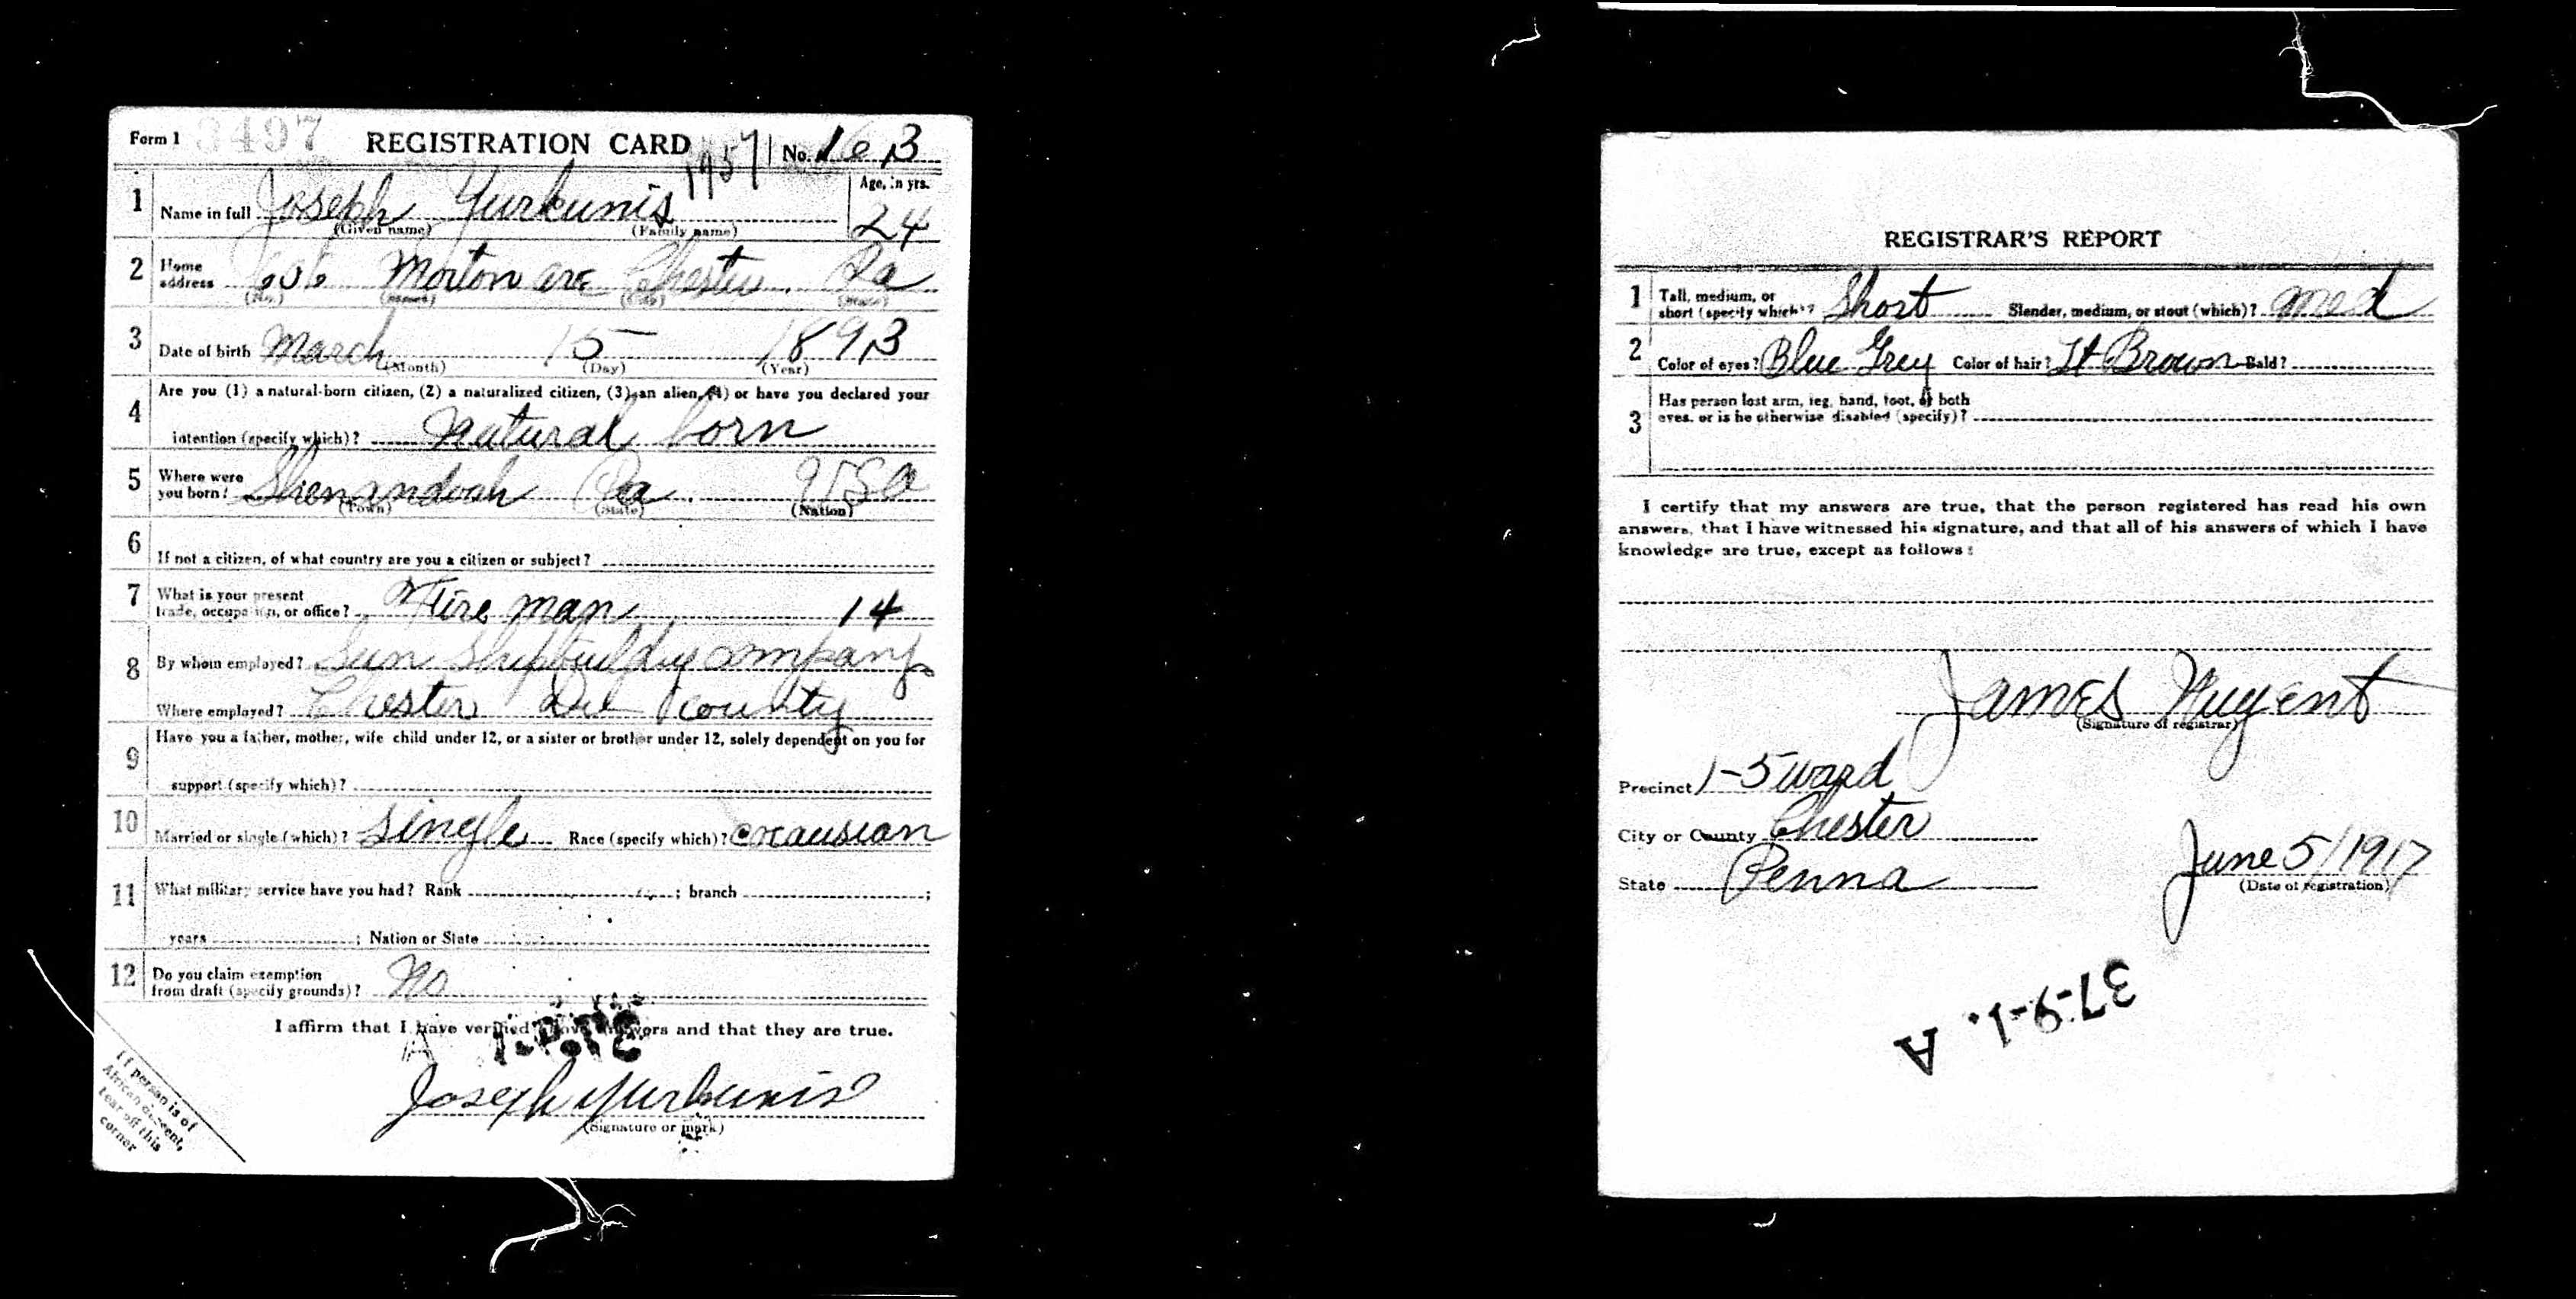 Form 1 3497 REGISTRATION CARD 1757 No. 163
1 Name in full Joseph Yurkunis Age, in yrs. 24
(Given name) (Family name)
2 Home address 606 Morton ave Chester Pa
(No.) (Street) (City) (State)
3 Date of birth March 15 1893
(Month) (Day) (Year)
4 Are you (1) a natural-born citizen, (2) a naturalized citizen, (3) an alien, (4) or have you declared your
intention (specify which)? Natural born
5 Where were you born? Shenandoah Pa USA
(Town) (State) (Nation)
6 If not a citizen, of what country are you a citizen or subject?
7 What is your present trade, occupation, or office? Fire man 14
8 By whom employed? Sun Shipbuildig company
Where employed? Chester Del county
9 Have you a father, mother, wife child under 12, or a sister or brother under 12, solely dependent on you for
support (specify which)?
10 Married or single (which)? Single Race (specify which)?
11 What military service have you had? Rank ; branch ;
years ; Nation or State
12 Do you claim exemption from draft (specify grounds)? No
I affirm that I have verified above answers and that they are true.
Joseph Yurkunis
(Signature or mark)
If person is of
African descent,
tear off this
corner
REGISTRAR'S REPORT
1 Tall, medium, or short (specify which)? Short Slender, medium, or stout (which)? med
2 Color of eyes? Blue Grey Color of hair? Lt Brown Bald?
3 Has person lost arm, leg, hand, foot, or both
eyes, or is he otherwise disabled (specify)?
I certify that my answers are true, that the person registered has read his own
answers, that I have witnessed his signature, and that all of his answers of which I have
knowledge are true, except as follows:
James Nugent
(Signature of registrar)
Precinct 1-5 ward
City or County Chester
State Penna June 5/1917
(Date of registration)
37-9-1. A